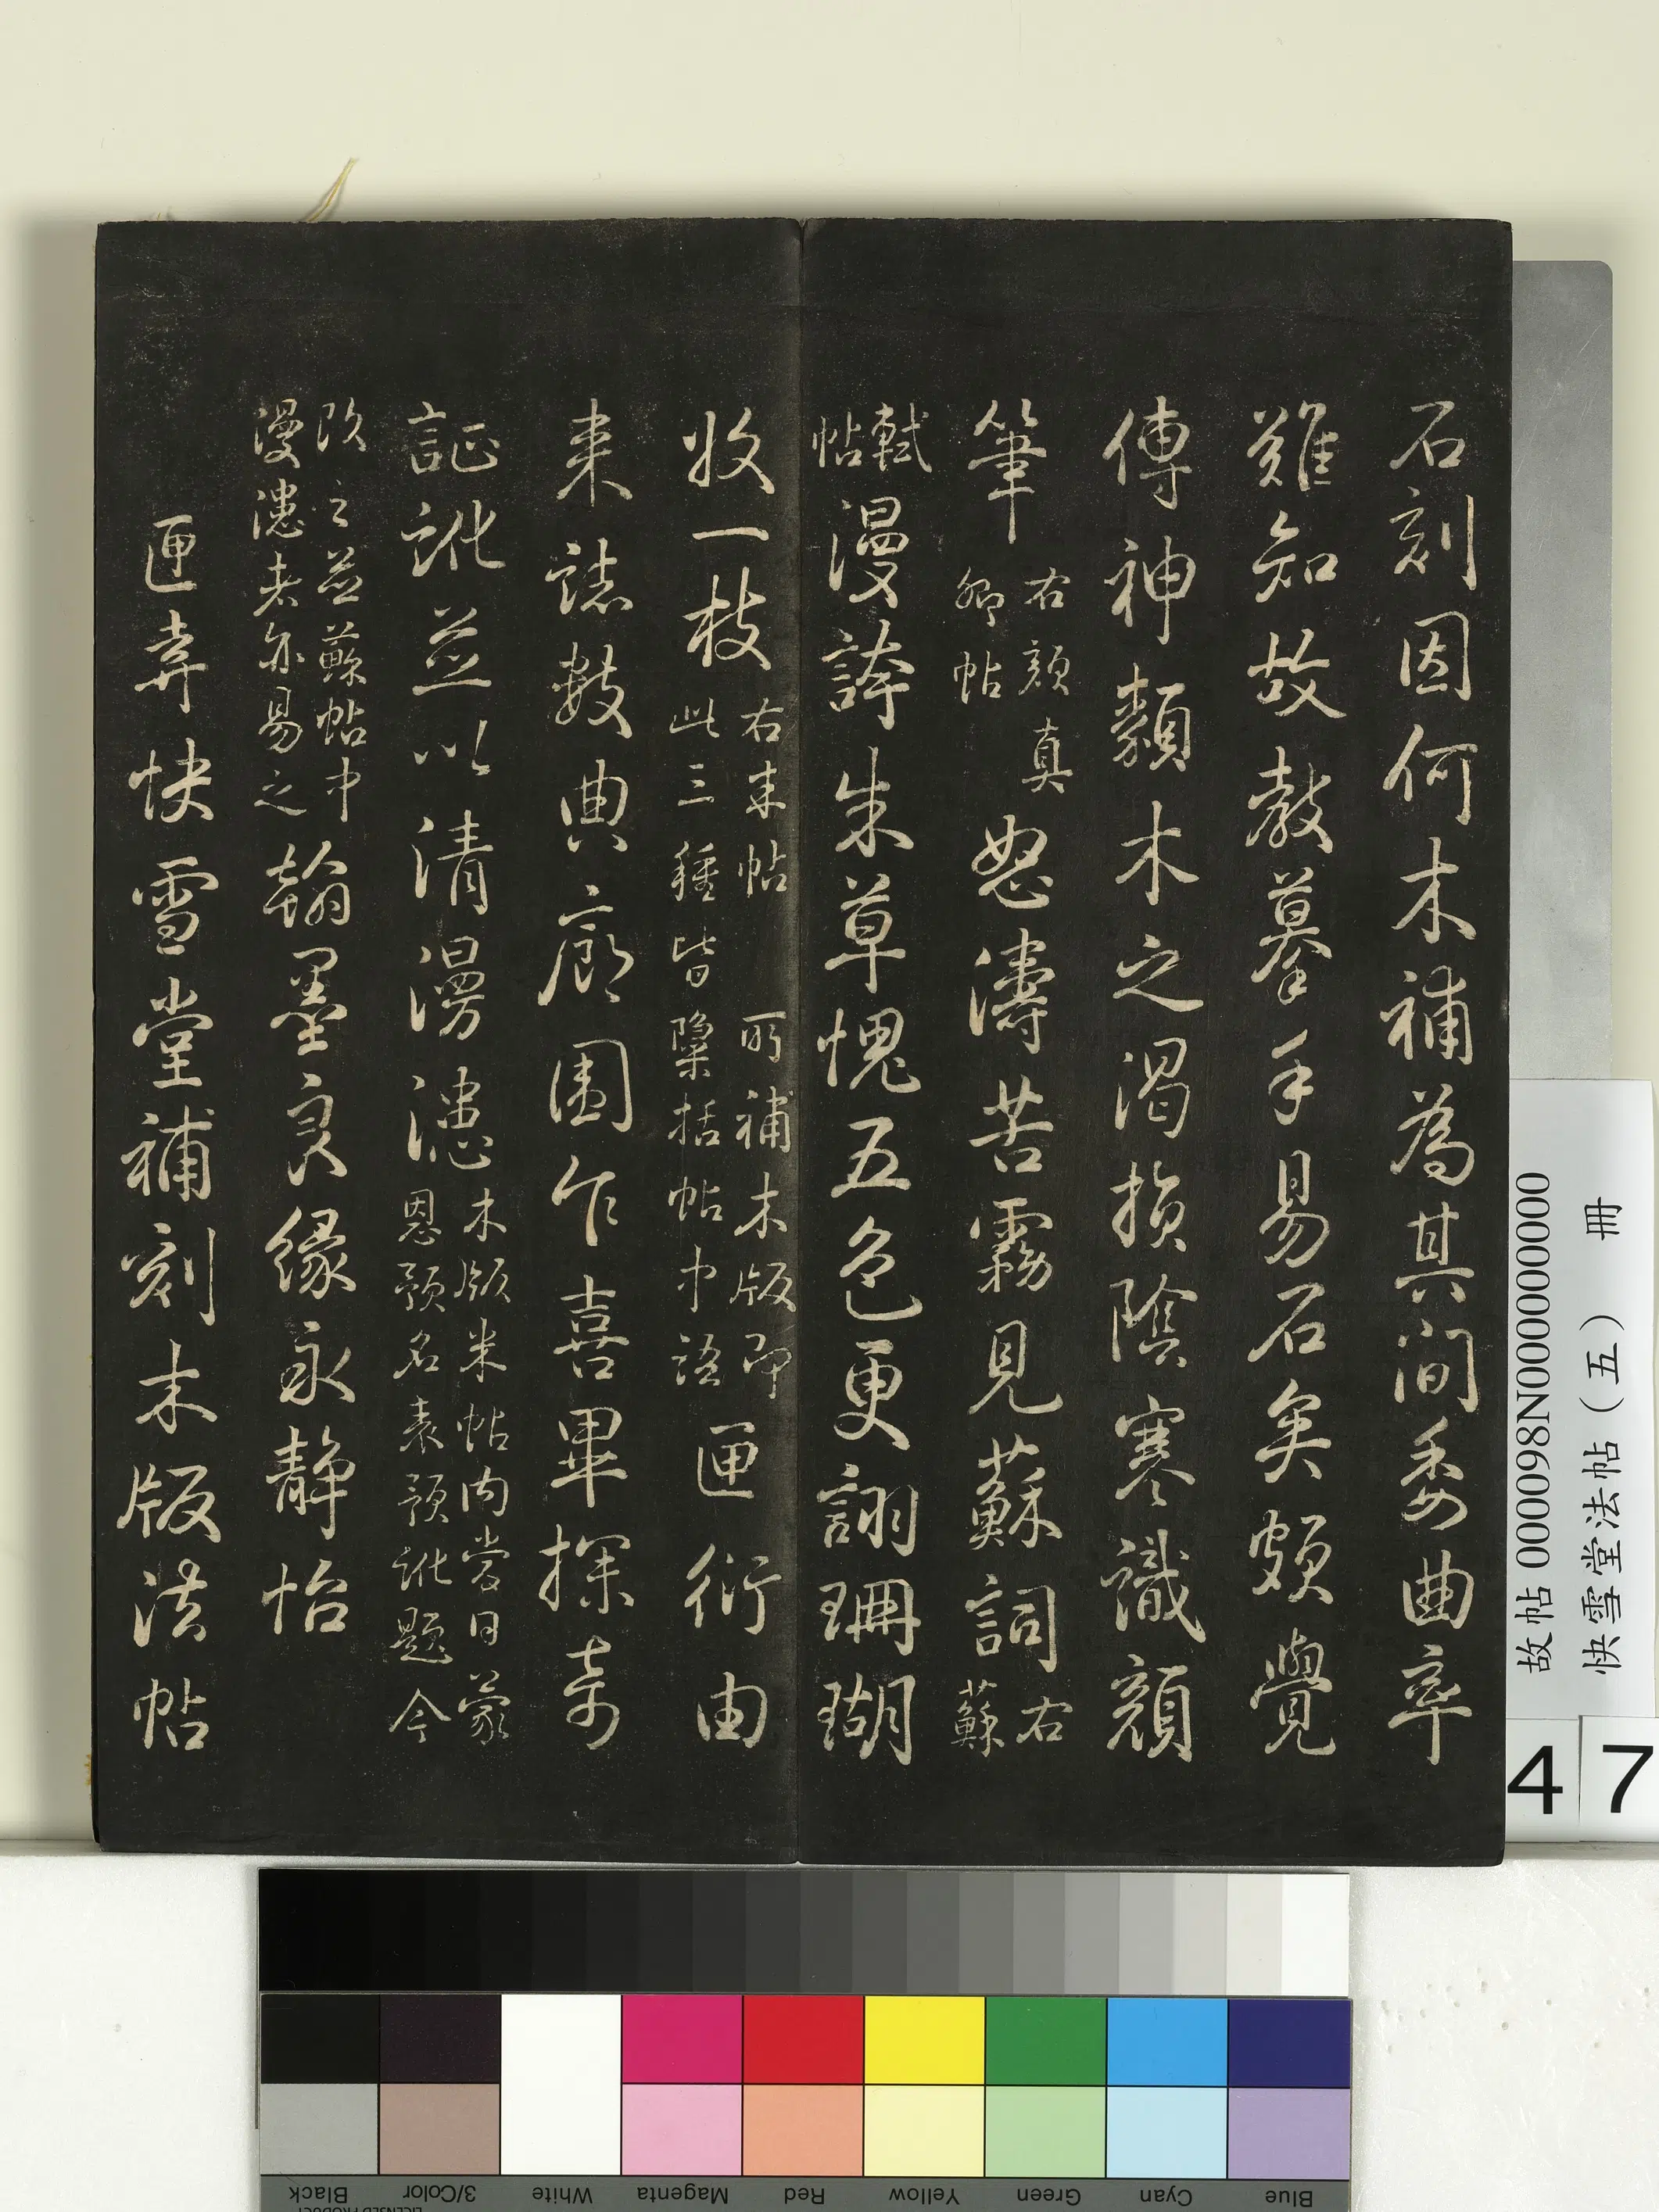 石刻因何木補為其間委曲率
難知故教摹手易石矣頗覺
傳神類木之渴損陰寒識顏
筆右顏真卿帖怒濤苦霧見蘇詞右蘇
軾帖漫誇朱草愧五色更詡珊瑚
收一枝右米帖所補木版即此三種皆檃括帖中語匣衍由
来誌數典廊圍乍喜畢探奇
証訛並以清漫漶木版米帖内嘗曰蒙恩預名表預訛題今
改之並蘇帖中漫漶者亦易之翰墨良緣永静怡
匣弆快雪堂補刻木版法帖
故帖 000098N000000000
快雪堂法帖（五） 冊
4 7
Black 3/Color White Magenta Red Yellow Green Cyan Blue